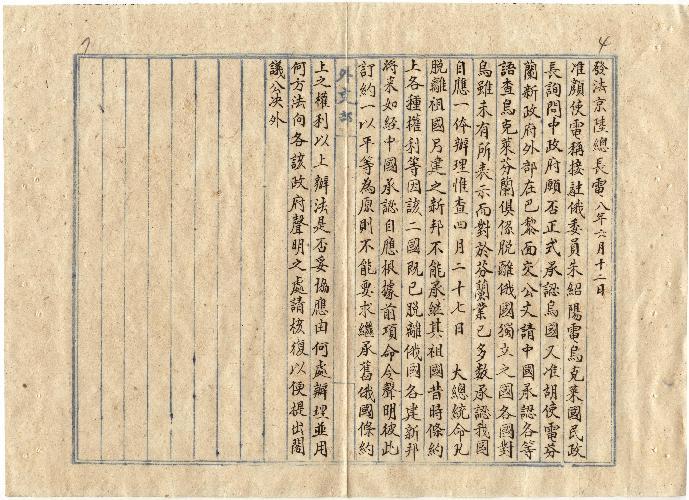 4
7
發法京陸總長電 八年六月十二日
准顏使電稱接駐俄委員朱紹陽電烏克萊國民政
長詢問中政府願否正式承認烏國又准胡使電芬
蘭新政府外部在巴黎面交公文請中國承認各等
語查烏克萊芬蘭俱係脫離俄國獨立之國各國對
烏雖未有所表示而對於芬蘭業已多數承認我國
自應一体辦理惟查四月二十七日 大總統命凡
脫離祖國另建之新邦不能承継其祖國昔時條約
上各種權利等因該二國既已脫離俄國各建新邦
將来如经中國承認自應根據前項命令聲明彼此
訂約一以平等為原則不能要求繼承舊俄國條約
外交部
上之權利以上辦法是否妥協應由何處辦理並用
何方法向各該政府聲明之處請核復以便提出閣
議公决外